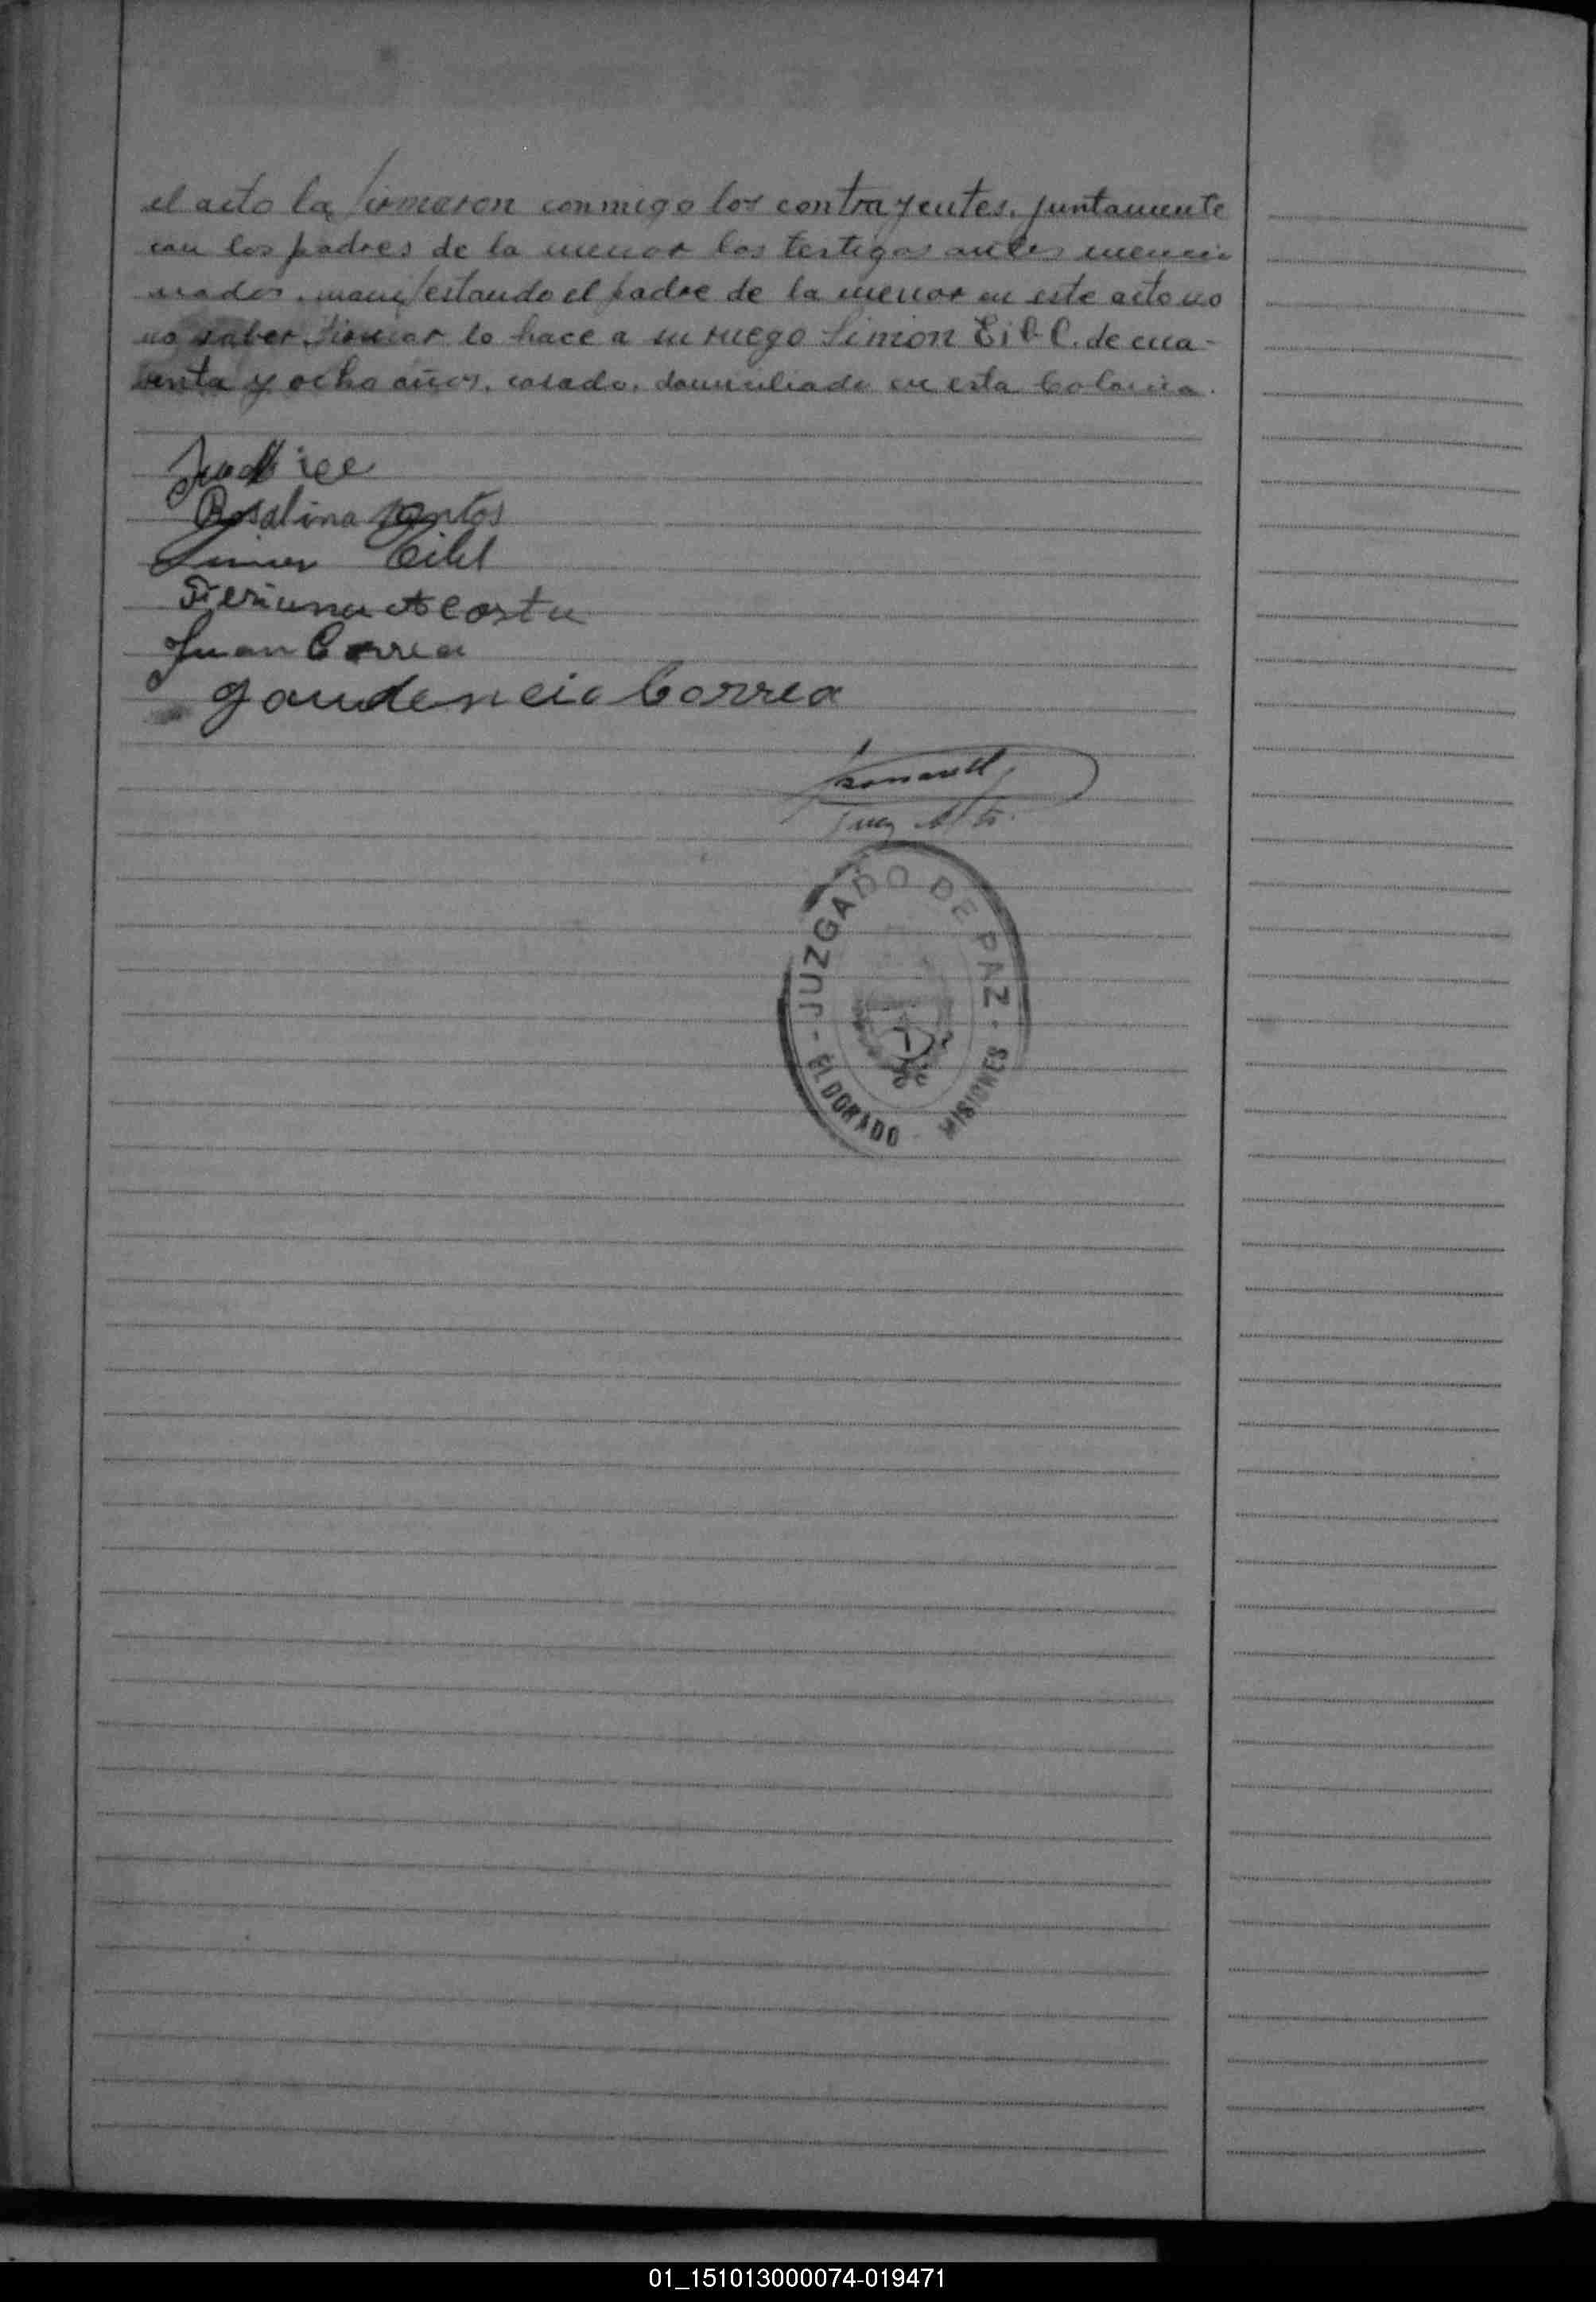 el acto la firmaron conmigo los contrayentes, juntamente
con los padres de la menor los testigos antes mencio
nados, manifestando el padre de la menor en este acto no
no saber firmar lo hace a su ruego Simion Eibl. de cua-
renta y ocho años, casado, domiciliado en esta Colonia.
Rosalina Santos
Simon Eibl
Acosta
Juan Correa
Gaudencio Correa
Juez
JUZGADO DE PAZ
- ELDORADO - MISIONES -
01_151013000074-019471